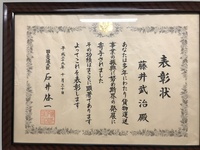 表彰状
藤井武治 殿
あなたは多年にわたり貨物運送
事業の振興に努め斯界の発展に
寄与されました
その功績はまことに顕著であります
よってこれを表彰します
平成二十九年十月二十日
国土交通大臣 石井啓一